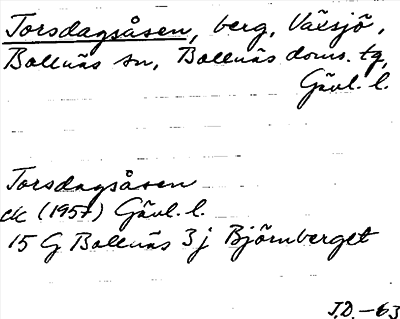 Torsdagsåsen, berg, Växsjö,
Bollnäs sn, Bollnäs doms. tg,
Gävl. l.
Torsdagsåsen
ek (1957) Gävl. l.
15 G Bollnäs 3 j Björnberget
J.D. -63